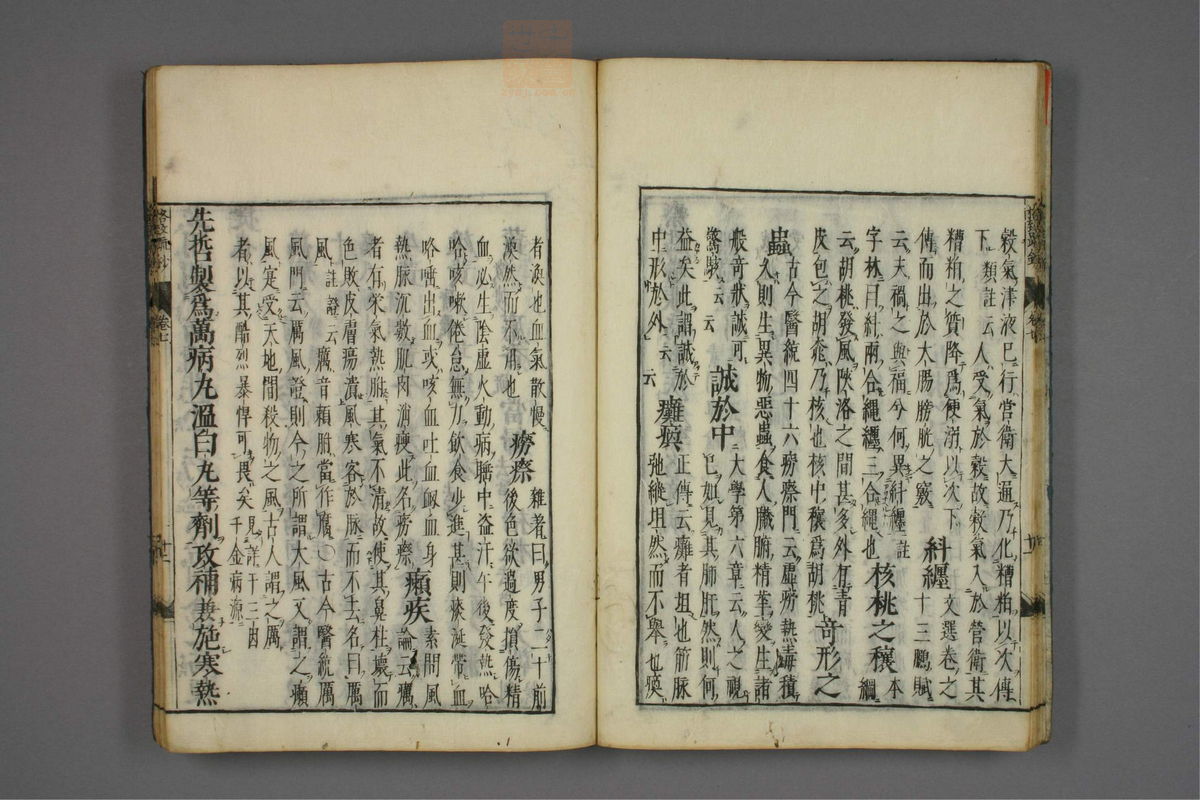 穀氣津液已行營衛大邕乃化糟粕以次傳
下類註云人受氣於穀故穀氣入於營衛其
糟粕之質降爲便溺以次下
傳而出於大腸膀胱之竅 糾纒 文選卷之十三鵬賦
云夫禍之與福兮何異糾纒註
字林曰糾兩合繩纒三合繩也 核桃之穰 本綱
云胡桃發風陜洛之間甚多外有青
皮包之胡桃乃核也核中穰爲胡桃 奇形之
蟲 古今醫統四十六癆瘵門云虛癆熱毒積
久則生異物惡蟲食人臟腑精華變生諸
般奇狀誠可
驚駭云云 誠於中 大學第六章云人之視
己如見其肺肝然則何
益矣此謂誠於
中形於外云云 癱瘓 正傳云癱者坦也筋脉
弛縱坦然而不舉也瘓
者渙也血氣散慢
渙然而不用也 癆瘵 雜著曰男子二十前
後色欲過度損傷精
血必生陰虛火動病睡中盗汗午後發熱哈
哈咳嗽倦怠無力飲食少進甚則痰涎帶血
咯唾出血或咳血吐血衂血身
熱脉沉數肌肉消瘦此名癆瘵 癩疾 素問風論云癘
者有榮氣熱胕其氣不清故使其鼻柱壞而
色敗皮膚瘍潰風寒客於脉而不去名曰厲
風註證云癘音頼胕當作腐○古今醫統厲
風門云厲風證則今之所謂大風又謂之癩
風寔受天地間殺物之風古人謂之厲
者以其酷烈暴悍可畏矣見註千三百
千金病源
先哲製爲萬病丸溫白丸等劑攻補兼施寒熱
卷七